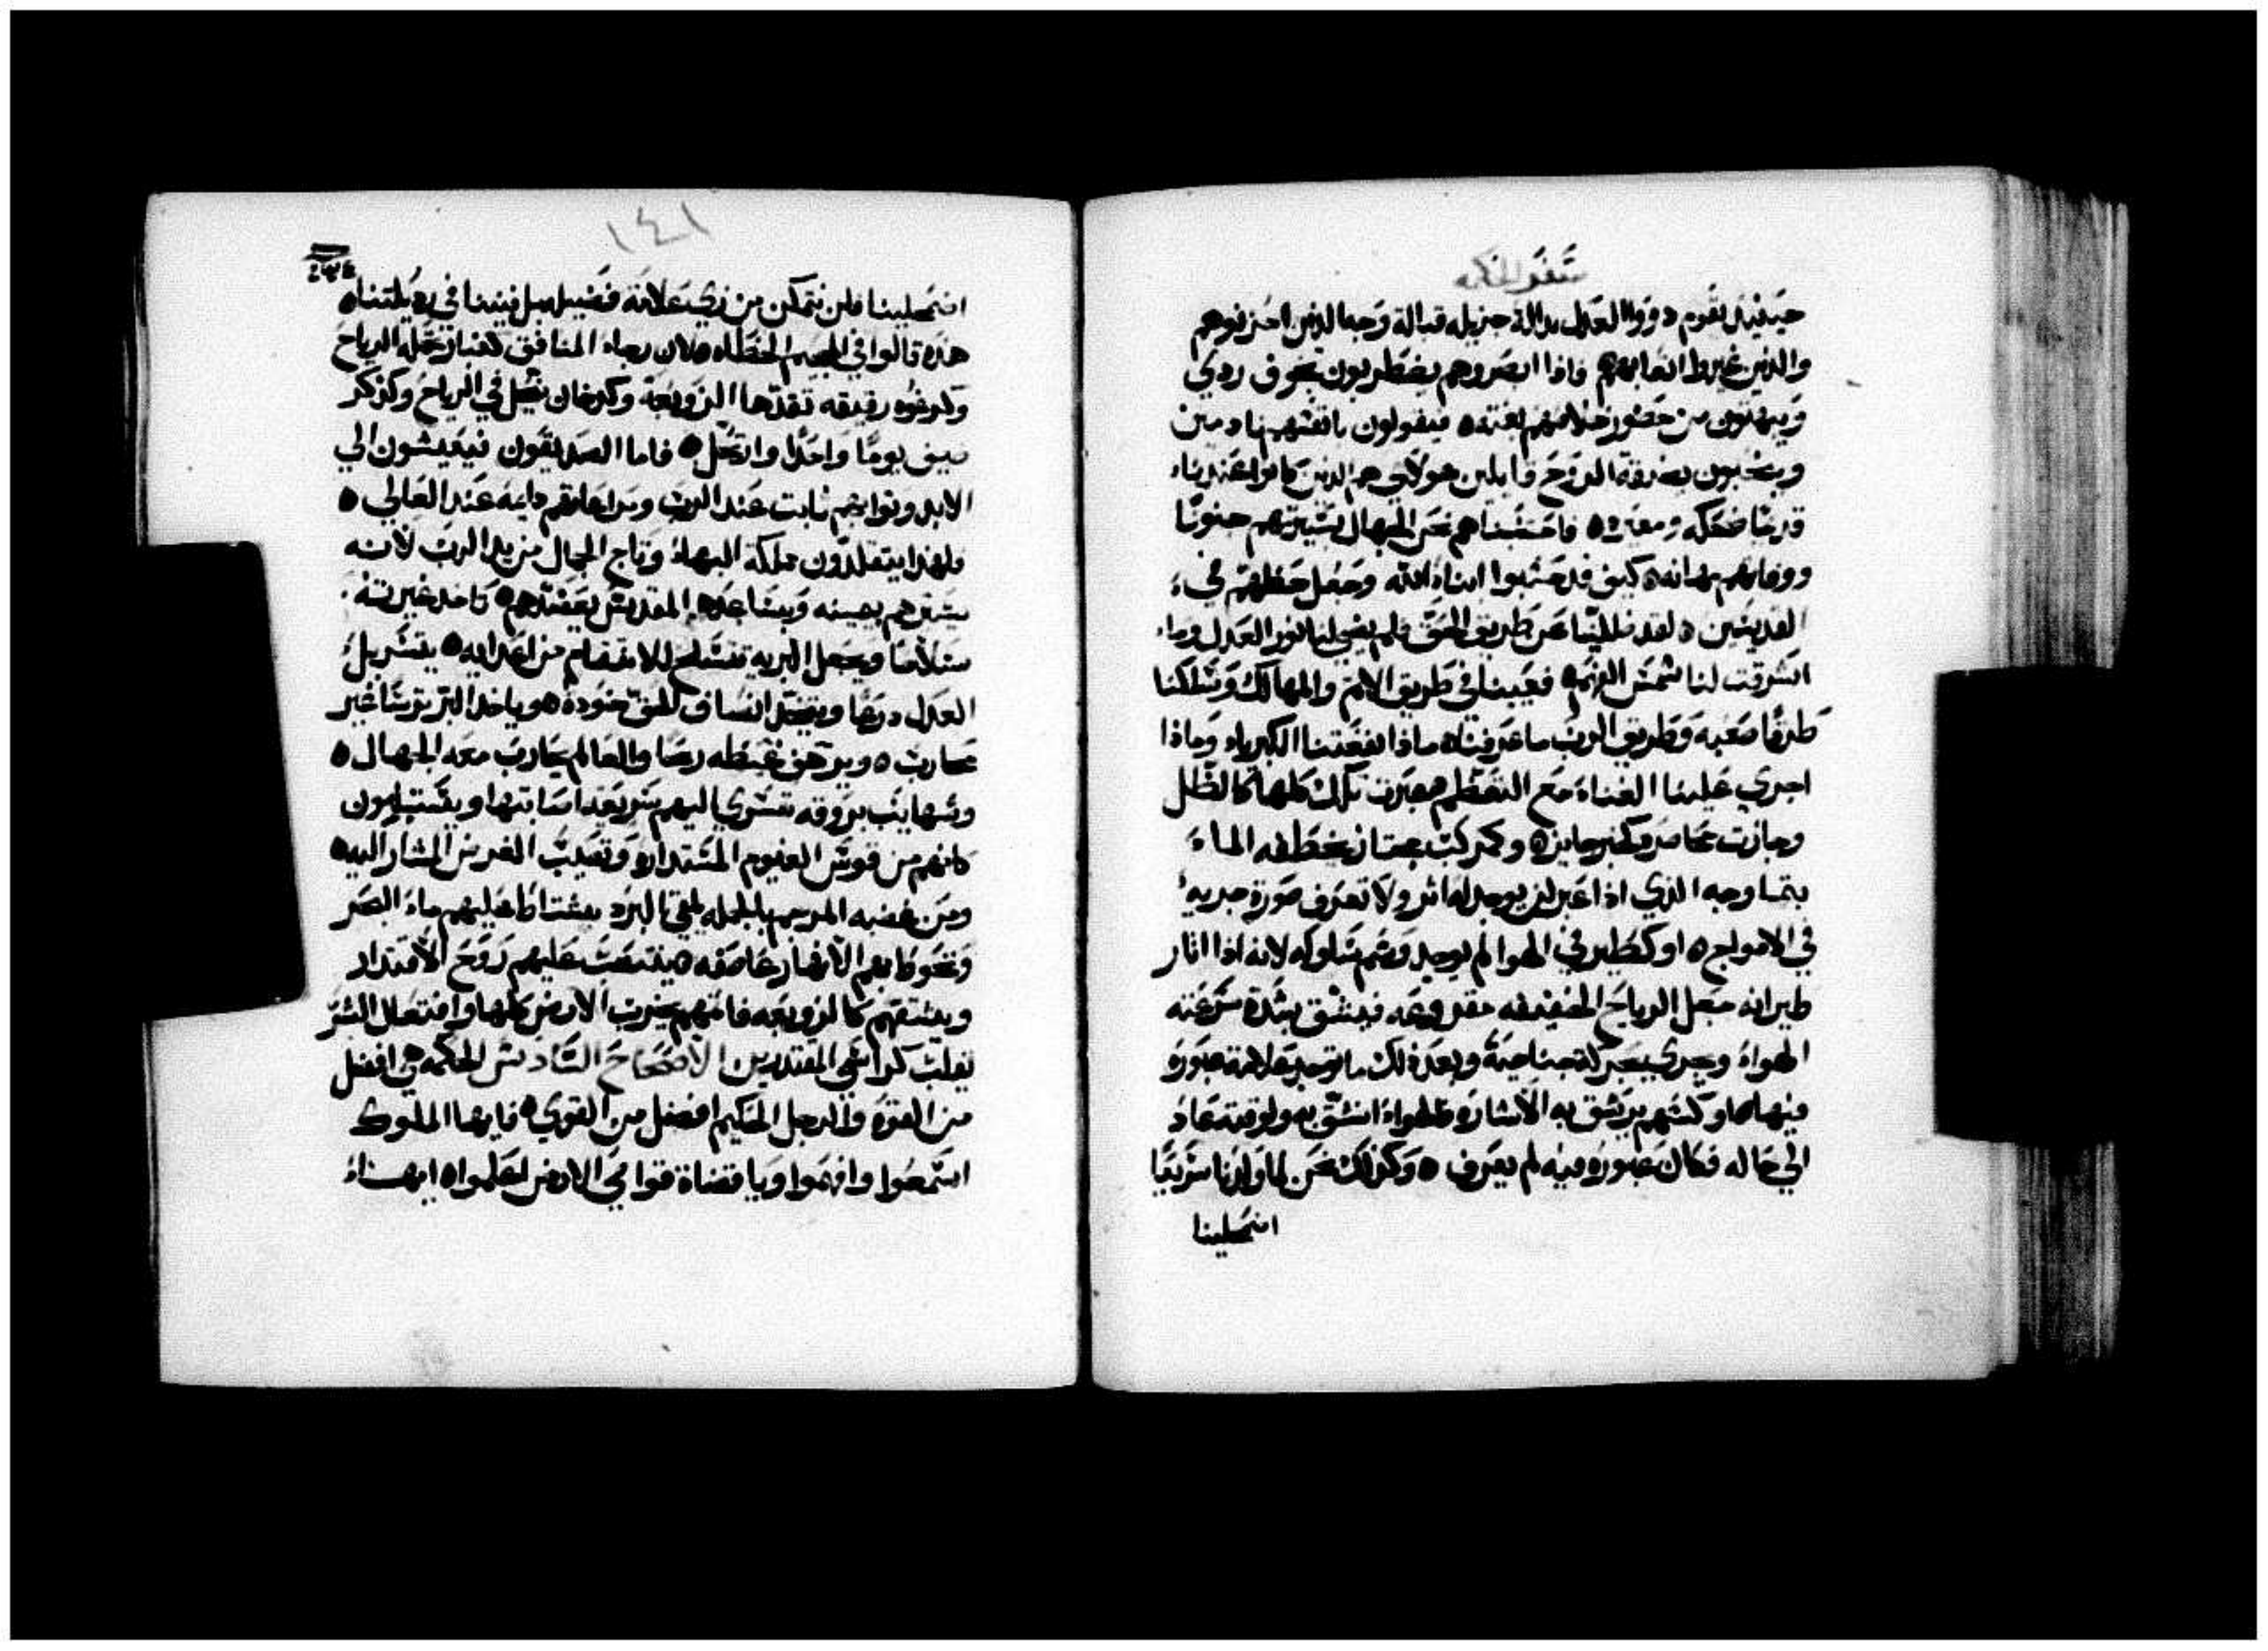 سفر الحكمه
حينيذ يقوم ذووا العدل بدالة جزيله قبالة وجه الذين احزنوهم
والذين غيروا اتعابهم ٥ فاذا ابصروهم يضطربون بخوف ردي
ويبهتون من حضور خلاصهم بغته ٥ فيقولون بانفسهم نادمين
وينتحبون بضيقة الروح قايلين هولاي هم الذين كانوا عندنا
قديمًا ضحكه ومعيره ٥ فاحتسبنا نحن الجهال سيرتهم جنونًا
ووفاتهم مهانه ٥ كيف قد حسبوا ابناء الله وجعل حظهم في
القديسين ٥ لقد ضللنا عن طريق الحق ولم يضي لنا نور العدل وما
اشرقت لنا شمس الفهم ٥ فعيينا في طريق الاثم والمهالك وسلكنا
طرقًا صعبه وطريق الرب ما عرفناه ماذا نفعتنا الكبرياء وماذا
اجدي علينا الغناء مع التعظم ٥ عبرت تلك كلها كالظل
وجازت كخبر جايز ٥ وكمركب مجتاز يخطفه الماء
بتماوجه الذي اذا عبر لن يوجد له اثر ولا تعرف صورة جريه
في الامواج ٥ او كطير في الهوا لم يوجد رسم سلوكه لانه اذا اثار
طيرانه جعل الرياح الخفيفه مقروعه فيشق بشدة سرعته
الهواء ويجري بحركة جناحيه وبعد ذلك ما توجد علامة عبوره
فيها ٥ او كسهم يرشق به الاشاره فالهواء انشق به ولوقته عاد
الي حاله فكان عبوره فيه لم يعرف ٥ وكذلك نحن لما ولدنا سريعًا
اضمحلينا
١٤١
اضمحلينا فلن نتمكن من نري علامة فضيله بل فنينا في رذيلتنا ٥
هذه قالوا في الجحيم الخطاه ٥ لان رجاء المنافق كغبار تحمله الرياح
وكرغوه رقيقه تقدها الزوبعة وكدخان يتحلل في الرياح وكذكر
ضيف يومًا واحدًا وارتحل ٥ فاما الصديقون فيعيشون الي
الابد وثوابهم ثابت عند الرب ومراعاتهم دايمه عند العالي ٥
فلهذا يتقلدون مملكة البهاء وتاج الجمال من يد الرب لانه
يسترهم بيمينه وبساعده المقدس يعضدهم ٥ ياخذ غيرته
سلاحًا ويجعل البريه تتسلح للانتقام من اعدايه ٥ يتسربل
العدل درعًا ويتخذ انصاف الحق خوده ٥ وياخذ البر ترسًا غير
محارب ٥ ويرهف غيظه رمحًا والعالم يحارب معه الجهال ٥
وشهايب بروقه تسري اليهم سريعًا
كانهم من قوس الغيوم المستداره وتصيب الغرض المشار اليه ٥
ومن غضبه المرجم يلقي البرد يغتاظ عليهم ماء البحر
وتحوط بهم الانهار عاصفه ٥ ينتصب عليهم روح الاقتدار
ويشتتهم كالزوبعه فاثمهم يخرب الارض كلها وافتعال الشر
يقلب كراسي المقتدرين الاصحاح السادس الحكمه هي افضل
من القوه والرجل الحكيم افضل من القوي ٥ فايها الملوك
استمعوا وافهموا ويا قضاة قواصي الارض اعلموا ٥ ايهذاء